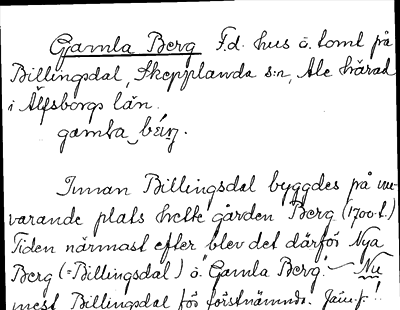 Gamla Berg F.d. hus o. tomt på
Billingsdal, Skepplanda s:n, Ale härad
i Älfsborgs län.
gamla bérg.
Innan Billingsdal byggdes på nu-
varande plats hette gården Berg (1700-t.)
Tiden närmast efter blev det därför Nya
Berg (=Billingsdal) o. "Gamla Berg". – Nu
mest Billingsdal för förstnämnda. Jämf. !